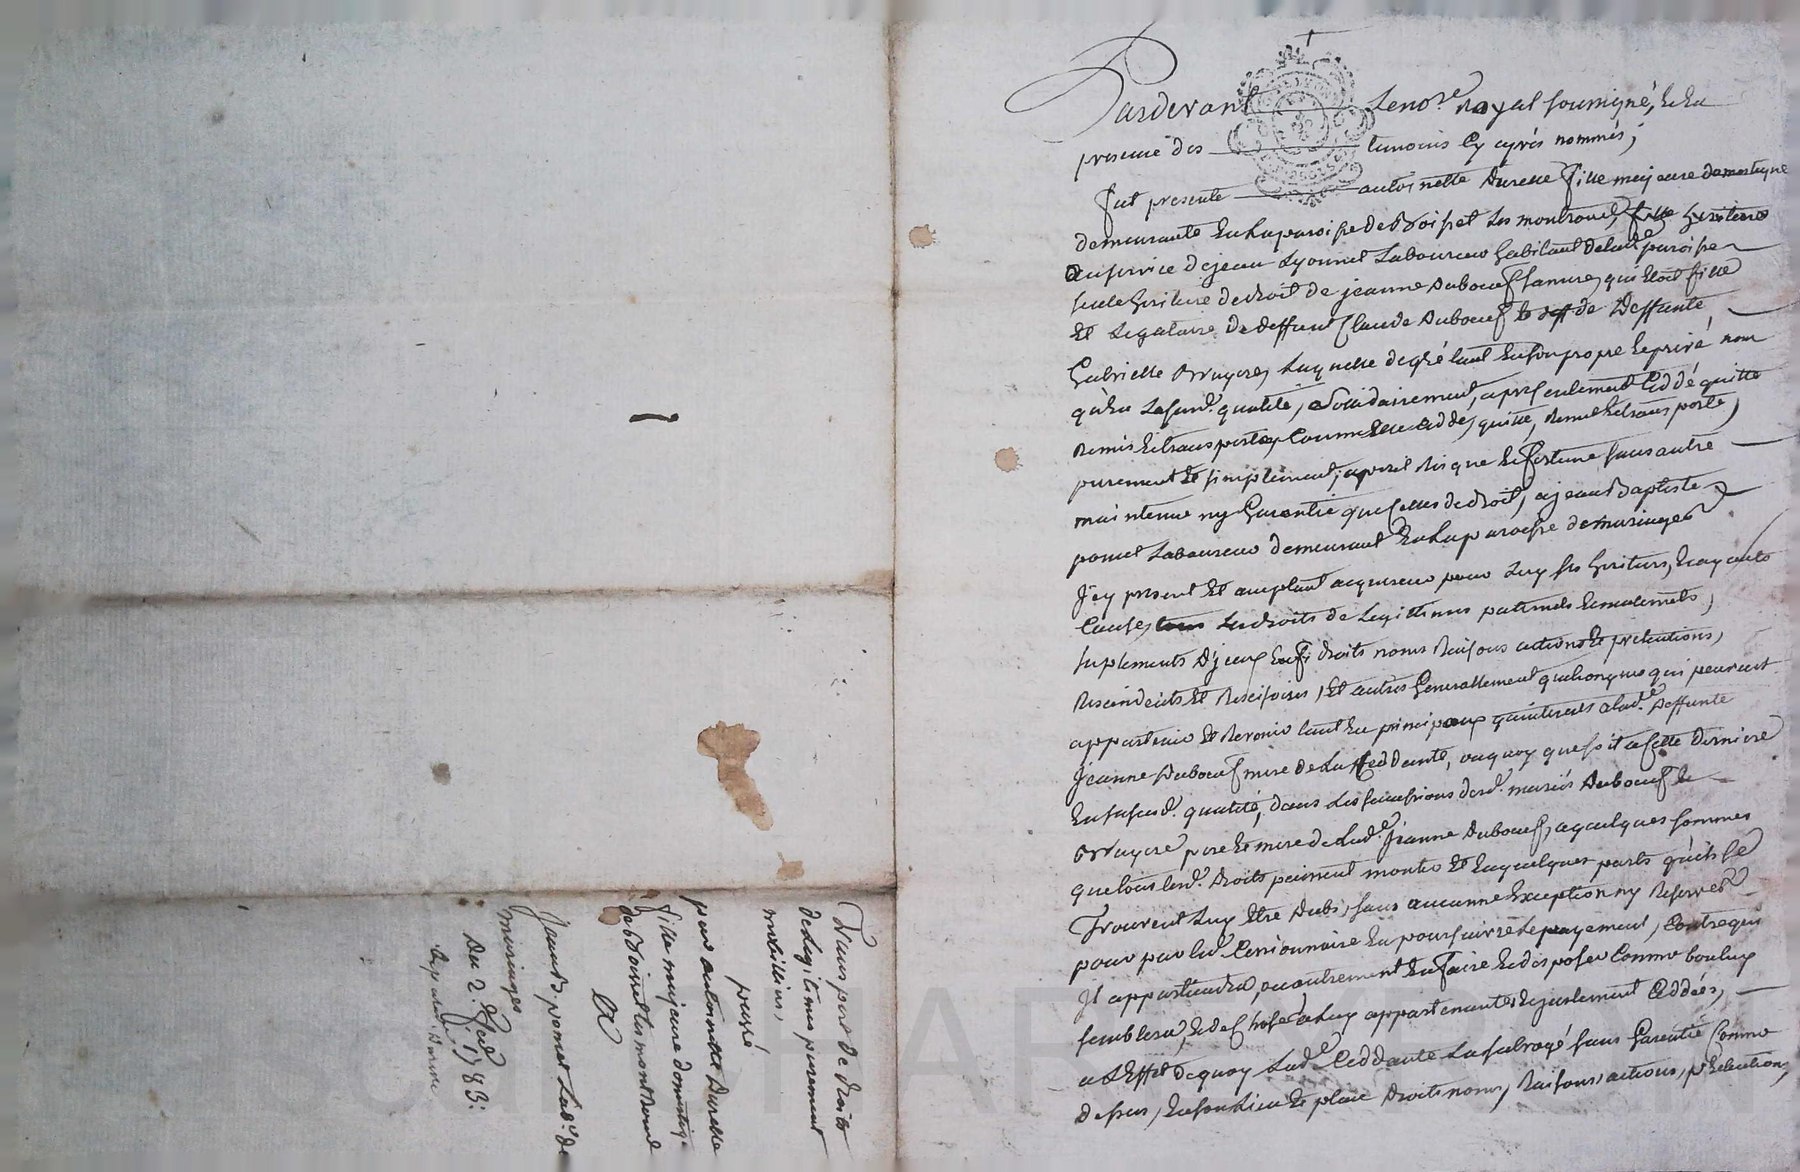 Pardevant Le no.re Royal soussigné, & en
presence des temoins cy aprés nommés;
fut presente antoinette Durelle fille majeure domestique
demeurante en la paroisse de Boisset Les montrond,
au service de jean Lyonnet Laboureur habitant de lad.e paroisse
seule heritiere de droit de jeanne Duboeuf sa mere, qui étoit fille
Et Legataire de deffunt Claude Duboeuf & de deffunte
Gabrielle Bruyere, Laquelle de gré tant en son propre & privé nom
qu'en Lasusd. qualité, solidairement, a presentement Ceddé quitte
Remis & transporté, Comme Elle Cedde, quitte, Remet & transporte,
purement & simplement, a peril Risque & fortune sans autre
maintenue ny Garentie que Celles de droit, a jean Baptiste
pomet Laboureur demeurant En La paroisse de maringes
Icy present Et acceptant acquereur pour Luy ses heritiers, & ayants
Cause, Les droits de Legitimes paternels & maternels,
suplements d'jceux droits noms Raisons actions & pretentions,
Rescindents Et Rescisoires, Et autres Generallement quelconques qui peuvent
appartenir Et Revenir tant En principaux qu'interets a lad.e deffunte
Jeanne Duboeuf mere de La Ceddante, ou quoy que soit a Cette derniere
En sa susd. qualité, dans Les successions desd. mariés Duboeuf &
Bruyere pere & mere de Lad.e Jeanne Duboeuf, a quelques sommes
que tous lesd. droits puissent monter Et En quelques parts qu'ils se
Trouvent Luy Etre dubs, sans aucunne Exception ny Reserve
pour par led. Cessionnaire En poursuivre Le payement, Contre qui
Il appartiendra, ou autrement En faire & disposer Comme bon luy
semblera, & de Chose a Luy appartenante & justement Ceddée,
a L'Effet de quoy Lad.e Ceddante La subrogé sans Garentie Comme
dessus, En son Lieu & place droits noms, Raisons, actions, pretentions,
Transport de droits
de Legitimes purement
mobiliers,
passé
par antoinette Durelle
fille majeure domestiq.
de Boisset les montrond
a
Jean B. pomet Lab.r de
maringes
Du 2.e 1783: